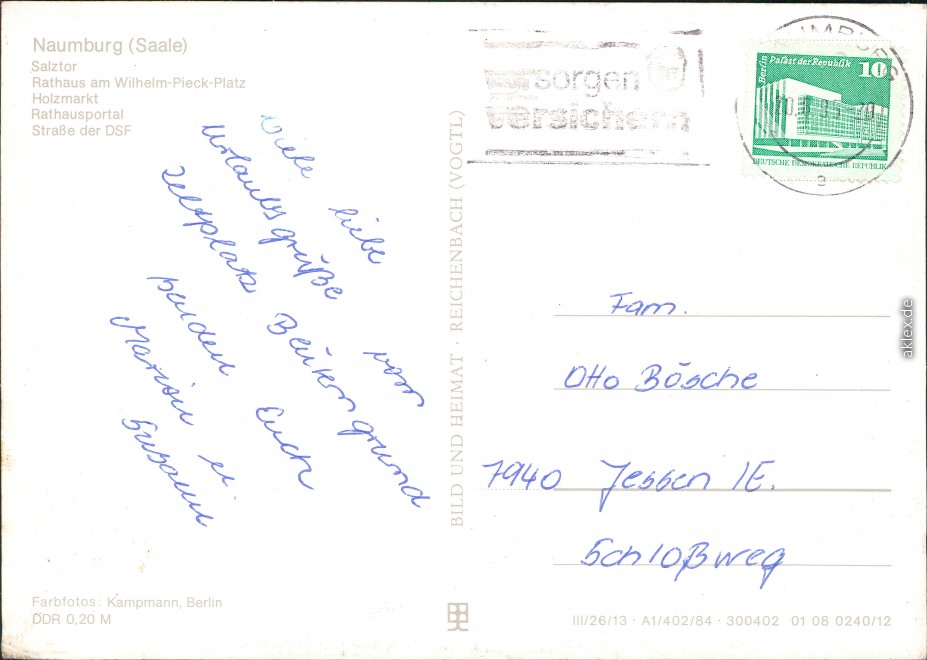 Naumburg (Saale)
Salztor
Rathaus am Wilhelm-Pieck-Platz
Holzmarkt
Rathausportal
Straße der DSF
Viele liebe
Urlaubsgrüße vom
Zeltplatz Beuterngrund
senden Euch
Marion u.
Susann
Farbfotos: Kampmann, Berlin
DDR 0,20 M
BILD UND HEIMAT · REICHENBACH (VOGTL)
sorgen
versichern
Berlin Palast der Republik 10
DEUTSCHE DEMOKRATISCHE REPUBLIK
a
Fam.
Otto Bösche
7940 Jessen /E.
Schloßweg
III/26/13 · A1/402/84 · 300402 01 08 0240/12
aklex.de